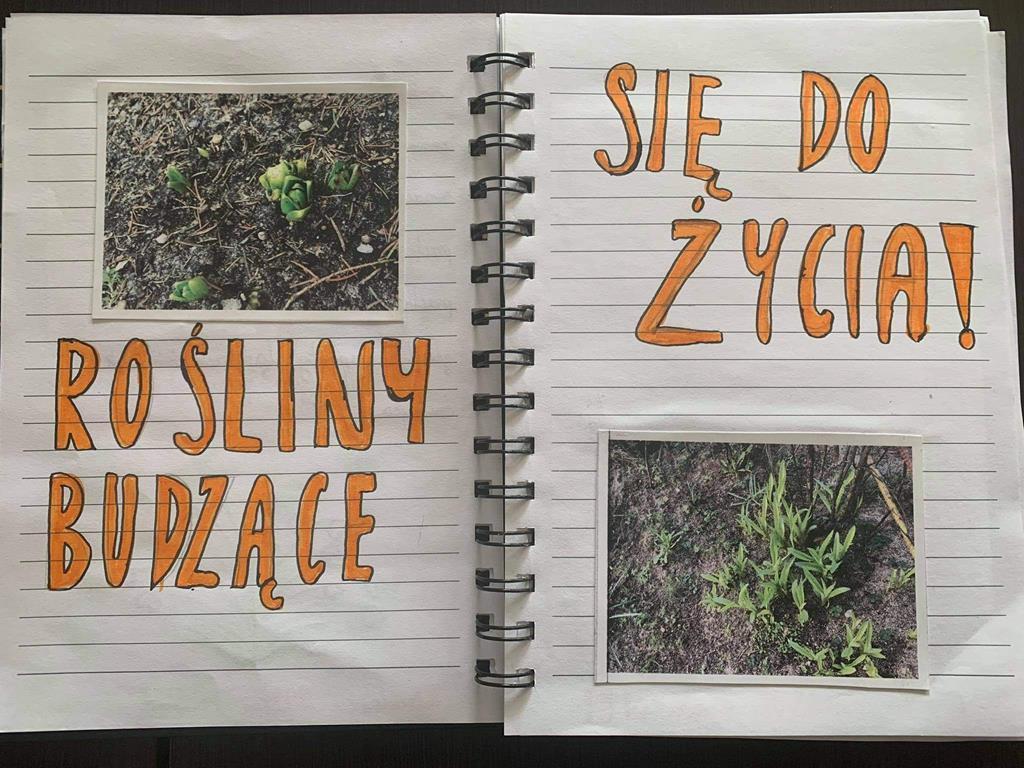 ROŚLINY
BUDZĄCE
SIĘ DO
ŻYCIA!